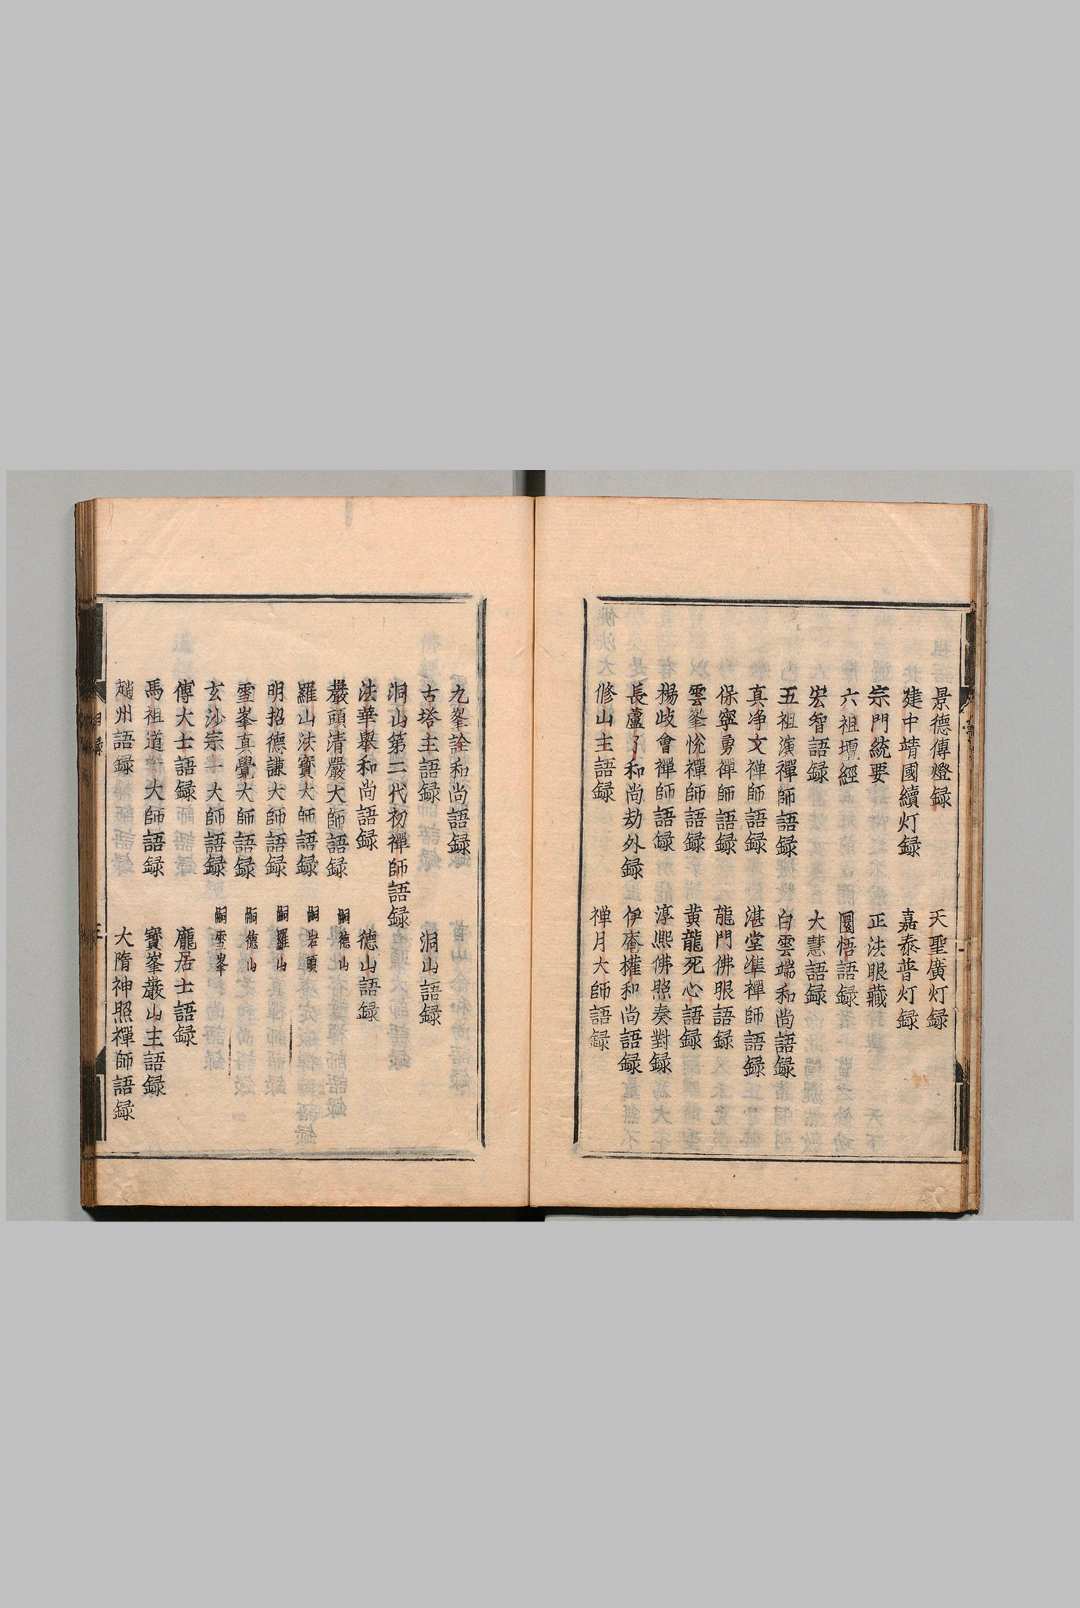 景德傳燈録　天聖廣灯録
建中靖國續灯録　嘉泰普灯録
宗門統要　正法眼藏
六祖壇經　圜悟語録
宏智語録　大慧語録
五祖演禪師語録　白雲端和尚語録
真净文禅師語録　湛堂準禪師語録
保寧勇禅師語録　龍門佛眼語録
雲峯恱禪師語録　黄龍死心語録
楊歧會禪師語録　淳熈佛照奏對録
長蘆了和尚劫外録　伊菴權和尚語録
脩山主語録　禅月大師語録
九峯詮和尚語録
古塔主語録　洞山語録
洞山第二代初禪師語録
法華舉和尚語録　德山語録
巖頭清嚴大師語録　嗣德山
羅山法寳大師語録　嗣岩頭
明招德謙大師語録　嗣羅山
雪峯真覺大師語録　嗣德山
玄沙宗一大師語録　嗣雪峯
傳大士語録　龐居士語録
馬祖道一大師語録　寳峯巖山主語録
趙州語録　大隋神照禪師語録
目録